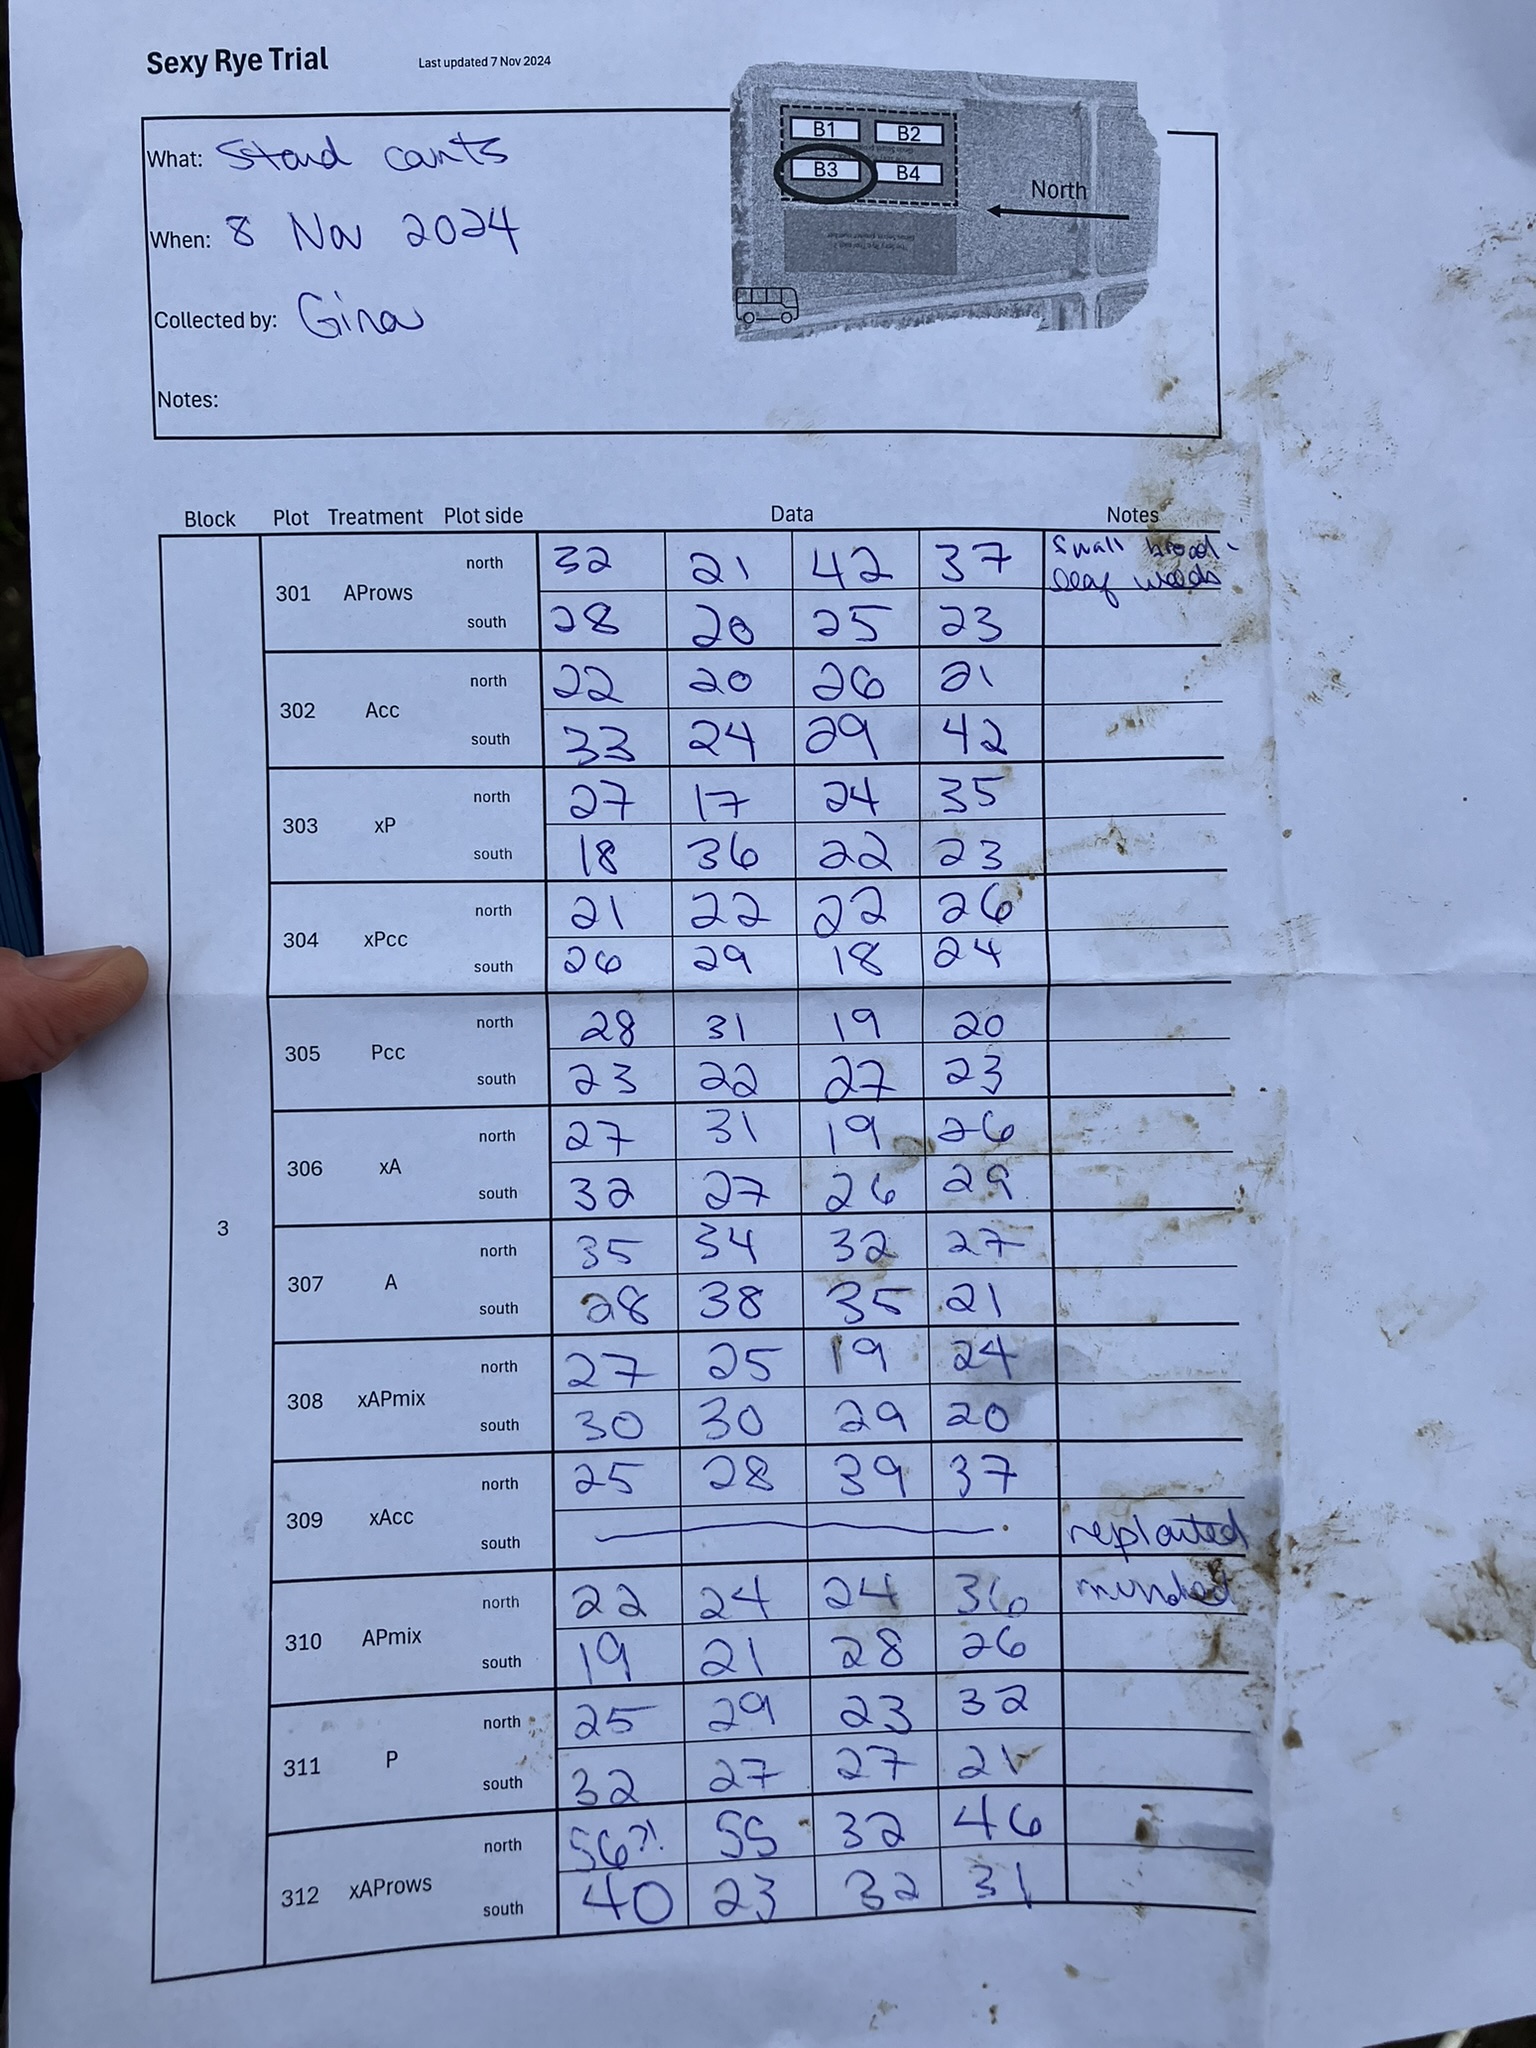 Sexy Rye Trial Last updated 7 Nov 2024
B1 B2
B3 B4
North
What: Stand counts
When: 8 Nov 2024
Collected by: Gina
Notes:
Block Plot Treatment Plot side Data Notes
3
301 AProws
north 32 21 42 37 Small broad-
leaf weeds
south 28 20 25 23
302 Acc
north 22 20 26 21
south 33 24 29 42
303 xP
north 27 17 24 35
south 18 36 22 23
304 xPcc
north 21 22 22 26
south 26 29 18 24
305 Pcc
north 28 31 19 20
south 23 22 27 23
306 xA
north 27 31 19 26
south 32 27 26 29
307 A
north 35 34 32 27
south 28 38 35 21
308 xAPmix
north 27 25 19 24
south 30 30 29 20
309 xAcc
north 25 28 39 37
south replanted
310 APmix
north 22 24 24 36
south 19 21 28 26
311 P
north 25 29 23 32
south 32 27 27 21
312 xAProws
north 56?! 55 32 46
south 40 23 32 31